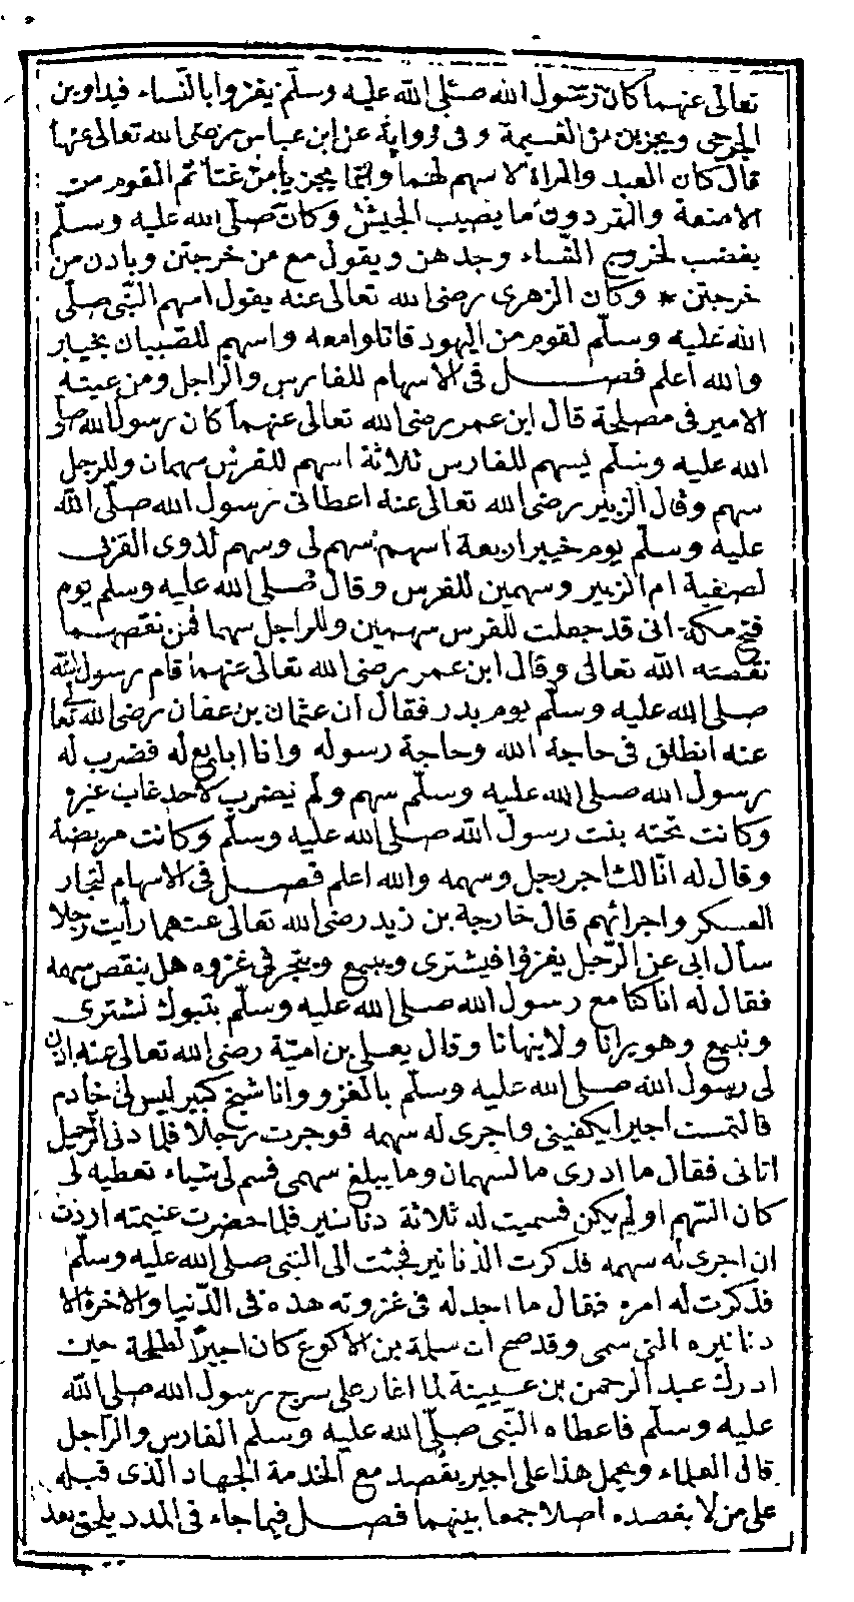 تعالى عنهما كان رسول الله صلى الله عليه وسلم يغزوا بالنساء فيداوين
الجرحى ويجزين من الغنيمة وفى رواية عن ابن عباس رضى الله تعالى عنهما
قال كان العبد والمراة لا سهم لهما وانما يجزيا من غنائم القوم من
الامتعة والقردون ما يصيب الجيش وكان صلى الله عليه وسلم
يغضب لخروج النساء وجدهن ويقول مع من خرجتن وباذن من
خرجتن * وكان الزهرى رضى الله تعالى عنه يقول اسهم النبى صلى
الله عليه وسلم لقوم من اليهود قاتلوا معه واسهم للصبيان بخيبر
والله اعلم فصل فى الاسهام للفارس والراجل ومن عيته
الامير فى مصلحة قال ابن عمر رضى الله تعالى عنهما كان رسول الله صلى
الله عليه وسلم يسهم للفارس ثلاثة اسهم للفرس سهمان وللرجل
سهم وقال الزبير رضى الله تعالى عنه اعطانى رسول الله صلى الله
عليه وسلم يوم خيبر اربعة اسهم سهم لى وسهم لذوى القربى
لصفية ام الزبير وسهمين للفرس وقال صلى الله عليه وسلم يوم
فتح مكة انى قد جعلت للفرس سهمين وللراجل سهما فمن نقصهما
نقصته الله تعالى وقال ابن عمر رضى الله تعالى عنهما قام رسول الله
صلى الله عليه وسلم يوم بدر فقال ان عثمان بن عفان رضى الله تعالى
عنه انطلق فى حاجة الله وحاجة رسوله وانا ابايع له فضرب له
رسول الله صلى الله عليه وسلم سهم ولم يضرب لاحد غاب غيره
وكانت تحته بنت رسول الله صلى الله عليه وسلم وكانت مريضة
وقال له ان لك اجر رجل وسهمه والله اعلم فصل فى الاسهام لتجار
العسكر واجرائهم قال خارجة بن زيد رضى الله تعالى عنهما رأيت رجلا
سأل ابى عن الرجل يغزوا فيشترى ويبيع ويتجر فى غزوه هل ينقص سهمه
فقال له انا كنا مع رسول الله صلى الله عليه وسلم بتبوك نشترى
ونبيع وهو يرانا ولا ينهانا وقال يعلى بن امية رضى الله تعالى عنه اذن
لى رسول الله صلى الله عليه وسلم بالغزو وانا شيخ كبير ليس لى خادم
فالتمست اجيرا يكفينى واجرى له سهمه فوجرت رجلا فلما دنى الرحيل
اتانى فقال ما ادرى ما لسهمان وما يبلغ سهمى فسم لى شياء تعطيه لى
كان السهم او لم يكن فسميت له ثلاثة دنانير فلما حضرت غنيمته اردت
ان اجرى له سهمه فذكرت الدنانير فجئت الى النبى صلى الله عليه وسلم
فذكرت له امره فقال ما اجد له فى غزوته هذه فى الدنيا والاخرة الا
دنانيره التى سمى وقد صح ان سلمة بن الاكوع كان اجيرا لطلحة حين
ادرك عبد الرحمن بن عيينة لما اغار على سرح رسول الله صلى الله
عليه وسلم فاعطاه النبى صلى الله عليه وسلم الفارس والراجل
قال العلماء ويحمل هذا على اجير يقصد مع الخدمة الجهاد الذى قبله
على من لا يقصده اصلا جمعا بينهما فصل فيما جاء فى المدد يلحق بعد